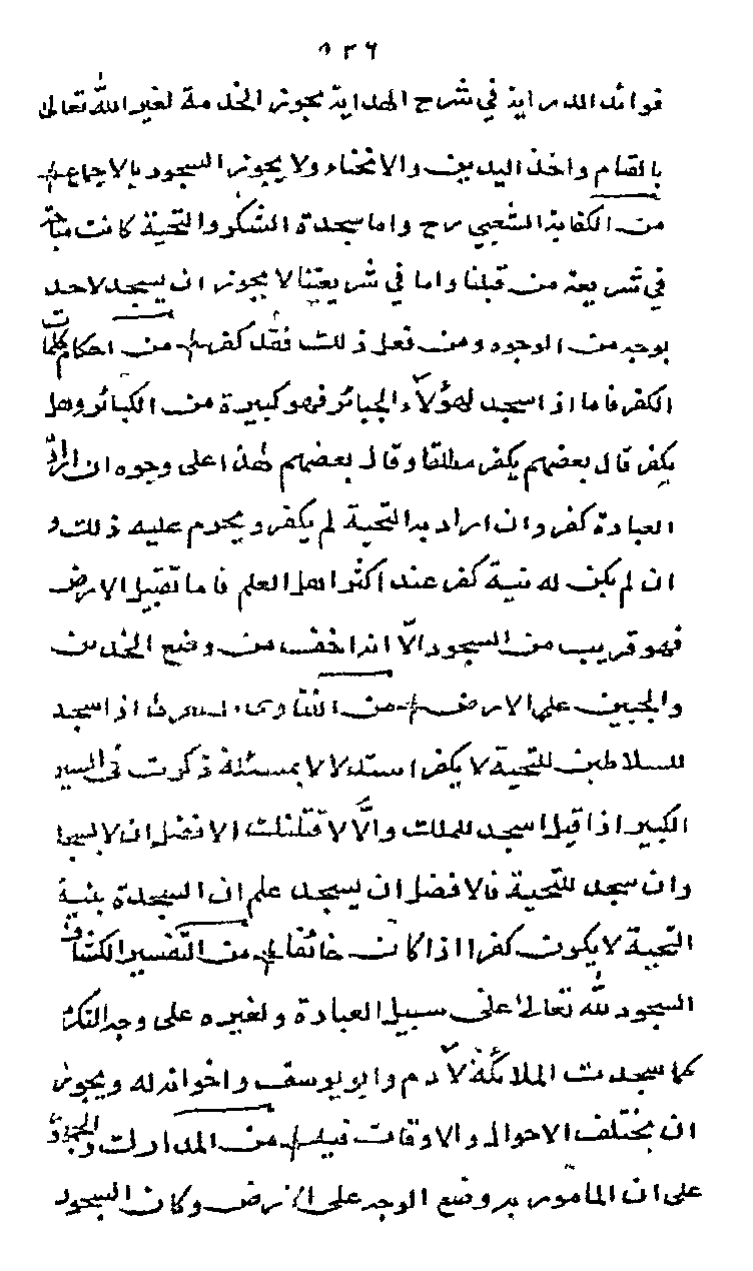 ٨٣٦
فوائد الدراية في شرح الهداية يجوز الخدمة لغير الله تعالى
بالقيام واخذ اليدين والانحناء ولا يجوز السجود بالاجماع
من الكفاية الشعبي رح واما سجدة الشكر والتحية كانت مباحة
في شريعة من قبلنا واما في شريعتنا لا يجوز ان يسجد لاحد
بوجه من الوجوه ومن فعل ذلك فقد كفر من احكام كلمات
الكفر فاما اذا سجد لهؤلاء الجبائر فهو كبيرة من الكبائر وهل
يكفر قال بعضهم يكفر مطلقا وقال بعضهم هذا على وجوه ان اراد
العبادة كفر وان اراد به التحية لم يكفر ويحرم عليه ذلك و
ان لم يكن له نية كفر عند اكثر اهل العلم فاما تقبيل الارض
فهو قريب من السجود الّا انه اخف من وضع الخدين
والجبين على الارض من الفتاوى اذا سجد
للسلاطين للتحية لا يكفر استدلالا بمسئلة ذكرت في السير
الكبير اذا قيل اسجد للملك والّا لاقتلنك الافضل ان لا يسجد
وان سجد للتحية فالافضل ان يسجد علم ان السجدة بنية
التحية لا يكون كفرا اذا كان خائفا من التفسير الكشاف
السجود لله تعالى على سبيل العبادة ولغيره على وجه التكرمة
كما سجدت الملائكة لآدم وابو يوسف واخوانه له ويجوز
ان يختلف الاحوال والاوقات فيه من المدارك والجمهور
على ان المأمور به وضع الوجه على الارض وكان السجود